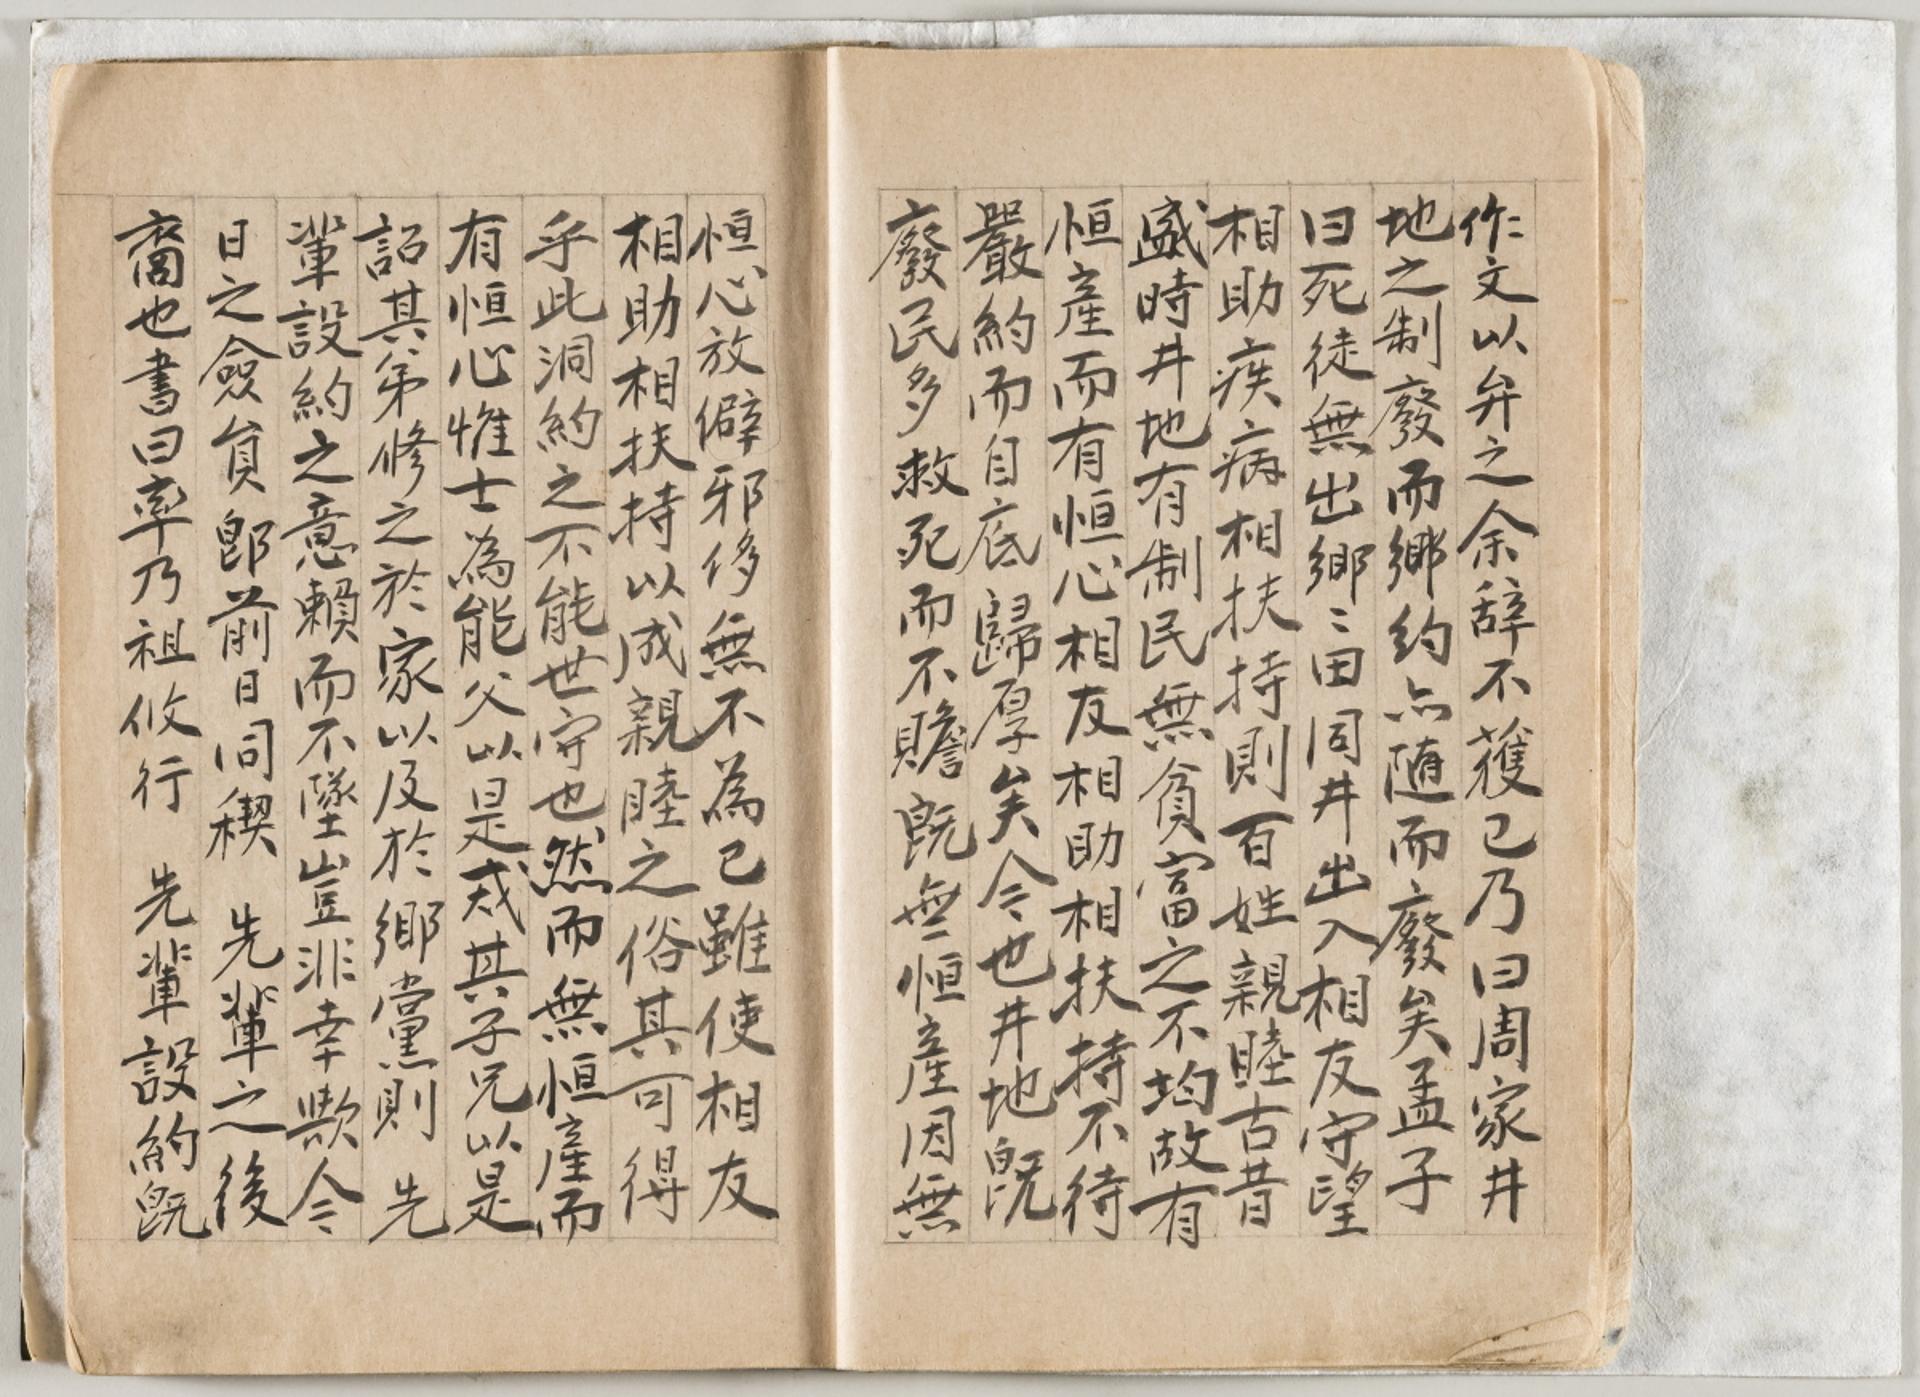 作文以弁之余辞不獲已乃曰周家井
地之制廢而鄉約亦随而廢矣孟子
曰死徒無出鄉〻田同井出入相友守望
相助疾病相扶持則百姓親睦古昔
盛時井地有制民無貧富之不均故有
恒産而有恒心相友相助相扶持不待
嚴約而自底歸厚矣今也井地既
廢民多救死而不贍既無恒産因無
恒心放僻邪侈無不為已雖使相友
相助相扶持以成親睦之俗其可得
乎此洞約之不能世守也然而無恒産而
有恒心惟士為能父以是戒其子兄以是
詔其弟修之於家以及於鄉黨則 先
輩設約之意賴而不墜豈非幸歟今
日之僉員卽前日同稧 先輩之後
裔也書曰率乃祖攸行 先輩設約既